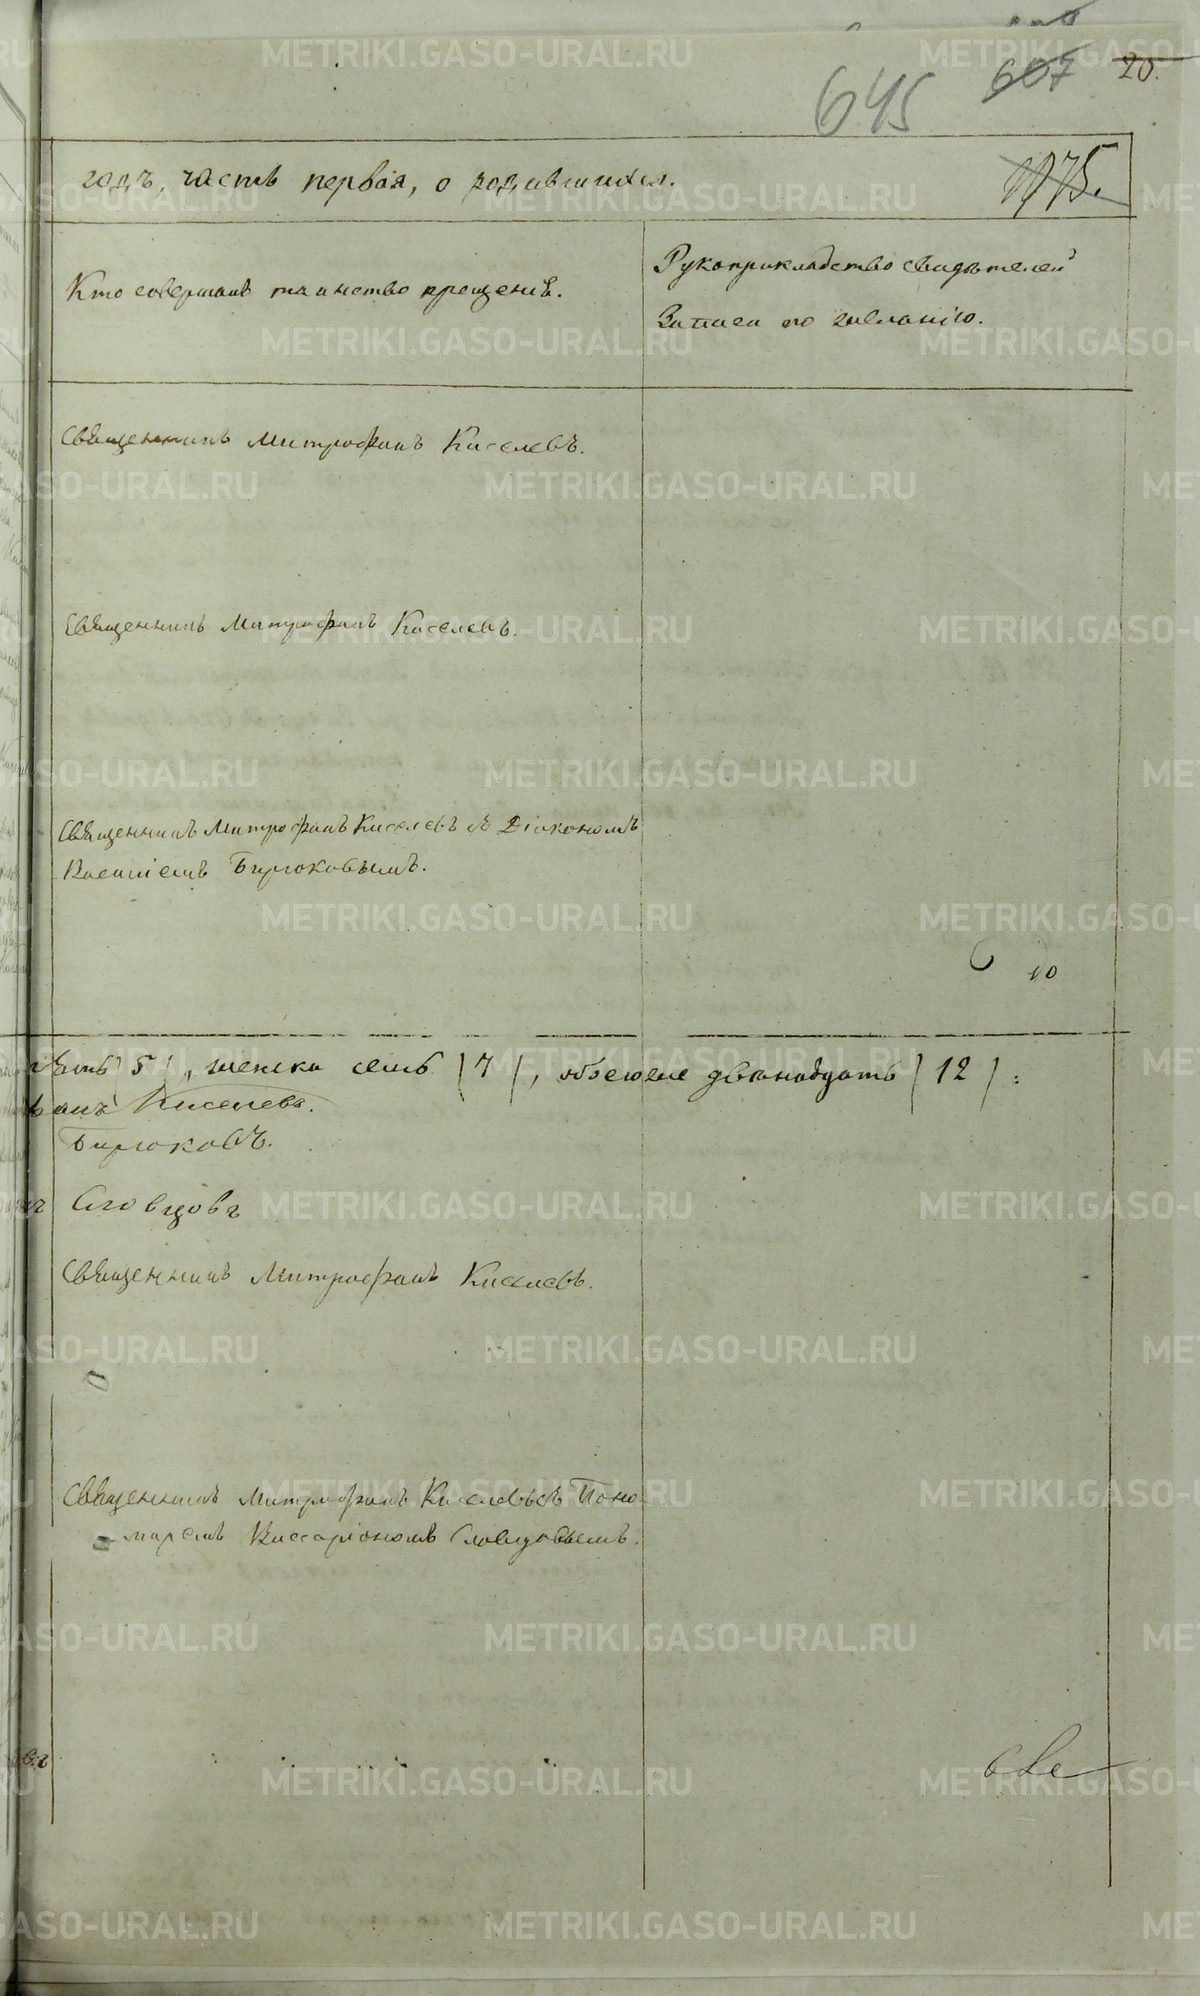 645 607 20.
годъ, часть первая, о родившихся. 1175.
Кто совершалъ таинство крещенія.
Рукоприкладство свидѣтелей
записи по желанію.
Священникъ Митрофанъ Киселевъ.
Священникъ Митрофанъ Киселевъ.
Священникъ Митрофанъ Киселевъ съ Діакономъ
Василіемъ Бирюковымъ.
5/, женска семь /7/, обоего двѣнадцать /12/:
Киселевъ.
Бирюковъ.
Словцовъ
Священникъ Митрофанъ Киселевъ.
Священникъ Митрофанъ Киселевъ съ Поно-
маремъ Виссаріономъ Словцовымъ.
METRIKI.GASO-URAL.RU